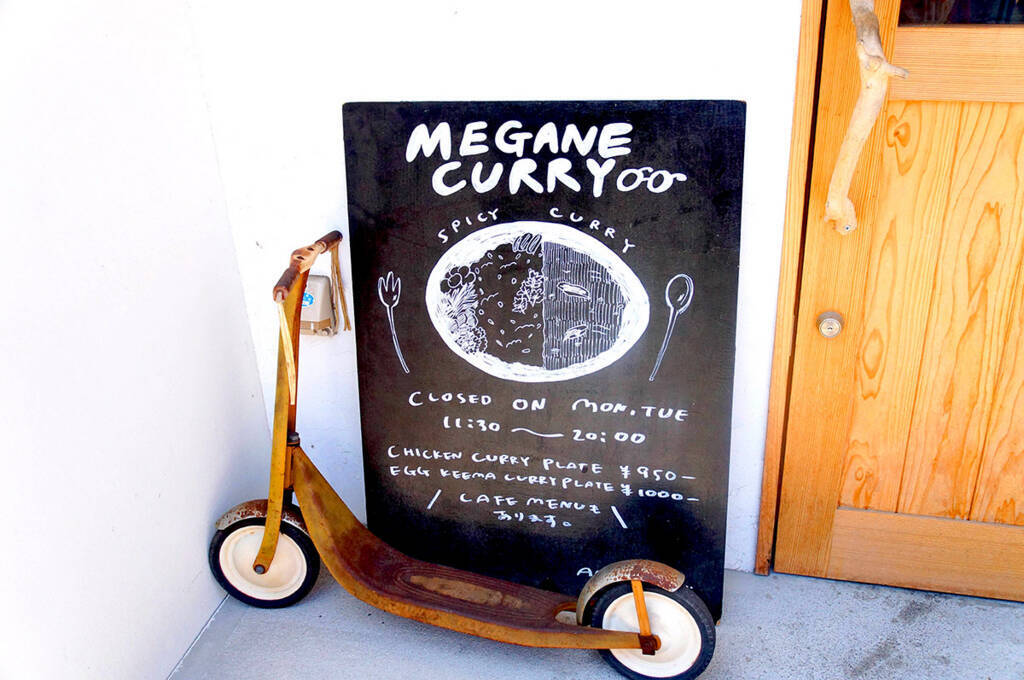 MEGANE
CURRY
SPICY CURRY
CLOSED ON MON, TUE
11:30 〜 20:00
CHICKEN CURRY PLATE ¥950-
EGG KEEMA CURRY PLATE ¥1000-
\ CAFE MENUも /
あります。